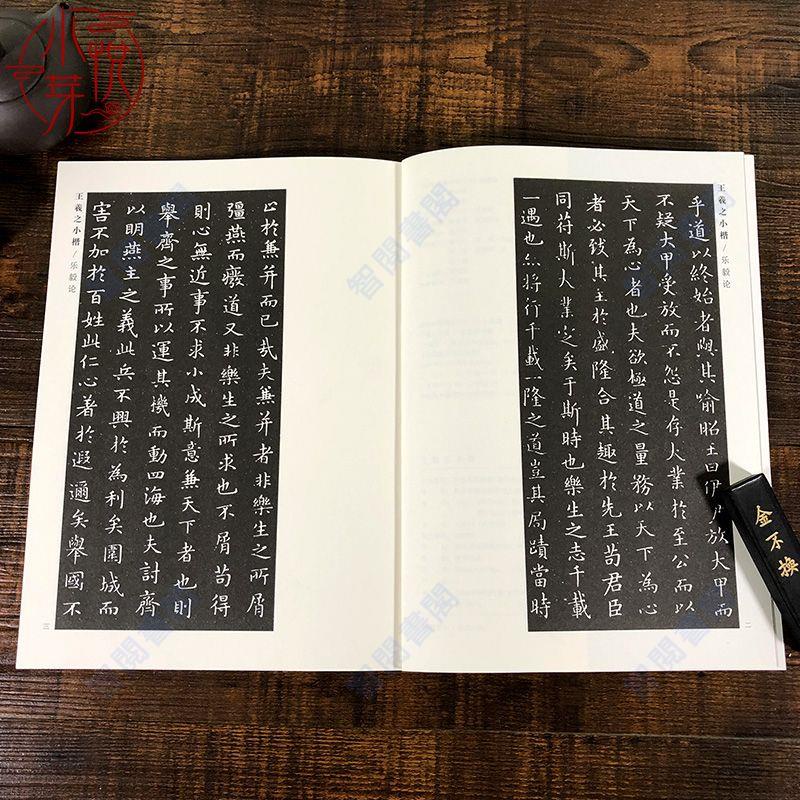 王羲之小楷/乐毅论
乎道以終始者與其喻昭王曰伊尹放大甲而
不疑大甲受放而不怨是存大業於至公而以
天下為心者也夫欲極道之量務以天下為心
者必致其主於盛隆合其趣於先王苟君臣
同符斯大業定矣于斯時也樂生之志千載
一遇也亦將行千載一隆之道豈其局蹟當時
二
王羲之小楷/乐毅论
止於兼并而已哉夫兼并者非樂生之所屑
彊燕而廢道又非樂生之所求也不屑苟得
則心無近事不求小成斯意兼天下者也則
舉齊之事所以運其機而動四海也夫討齊
以明燕主之義此兵不興於為利矣圍城而
害不加於百姓此仁心著於遐邇矣舉國不
三
金不換
智閱書閣
智閱書閣
智閱書閣
智閱書閣
智閱書閣
智閱書閣
智閱書閣
智閱書閣